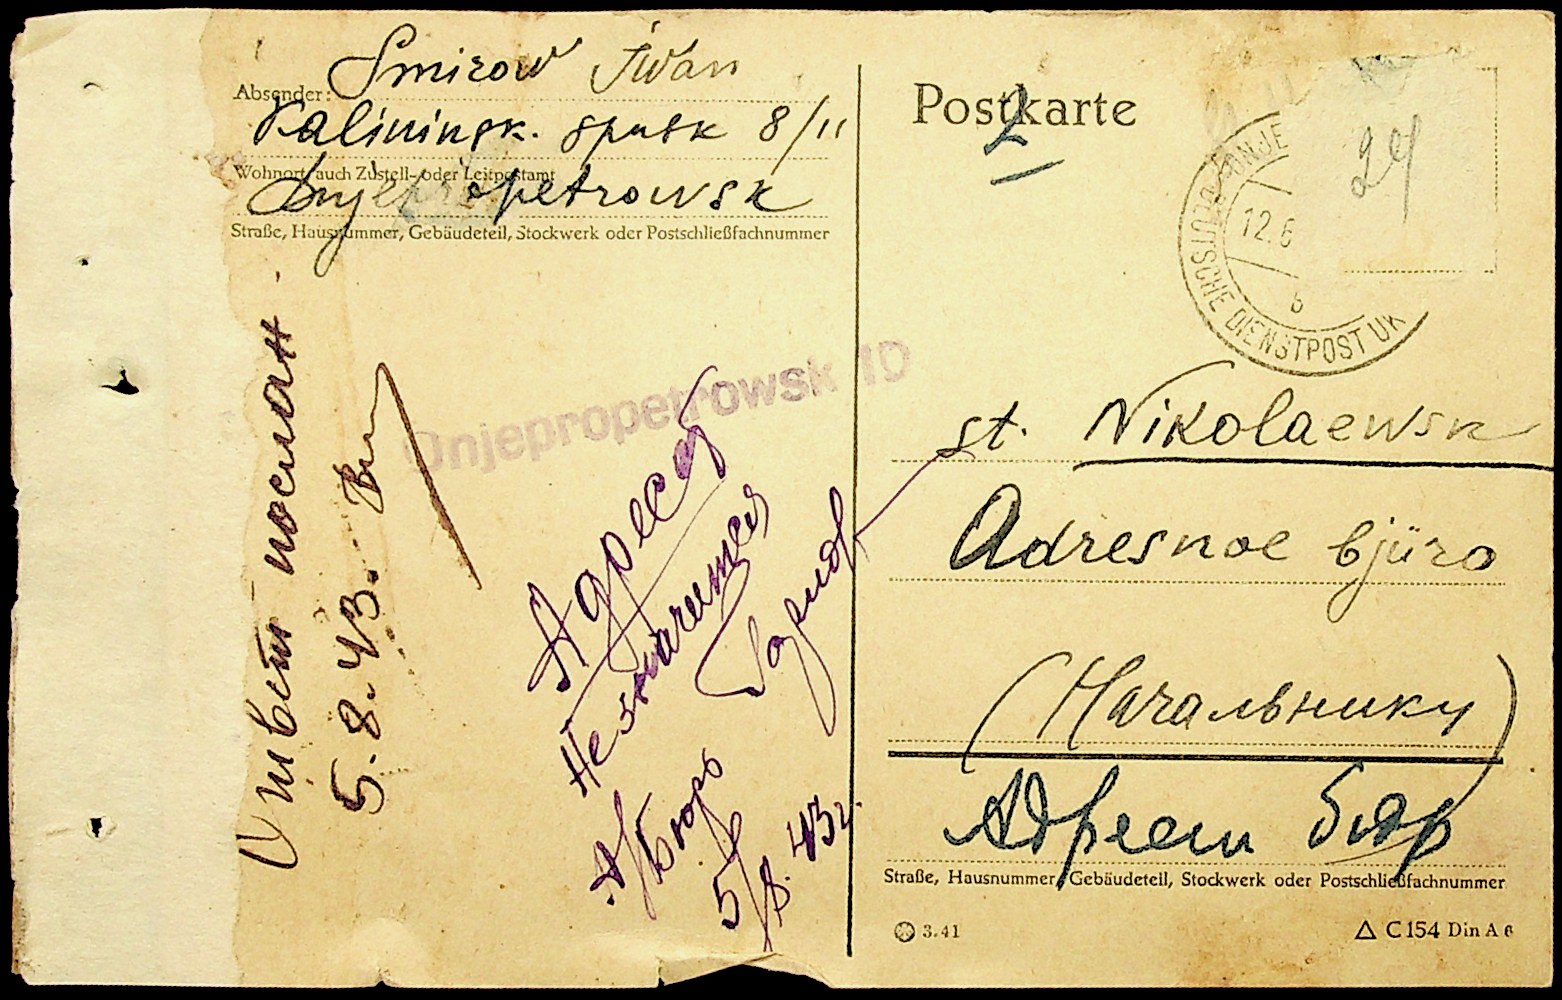 Smirow Iwan
Absender:
Kalininsk. spusk 8/11
Wohnort, auch Zustell- oder Leitpostamt
Dnjepropetrowsk
Straße, Hausnummer, Gebäudeteil, Stockwerk oder Postschließfachnummer
Postkarte
2
24
DEUTSCHE DIENSTPOST UK
12.6
b
Dnjepropetrowsk 1D
Ответ послан
5.8.43.
Адресат
Не значится
А/Бюро
5/8.43г.
st. Nikolaewsk
Adresnoe bjüro
(Начальнику)
Адресн бюр
Straße, Hausnummer, Gebäudeteil, Stockwerk oder Postschließfachnummer
3.41
C 154 Din A 6